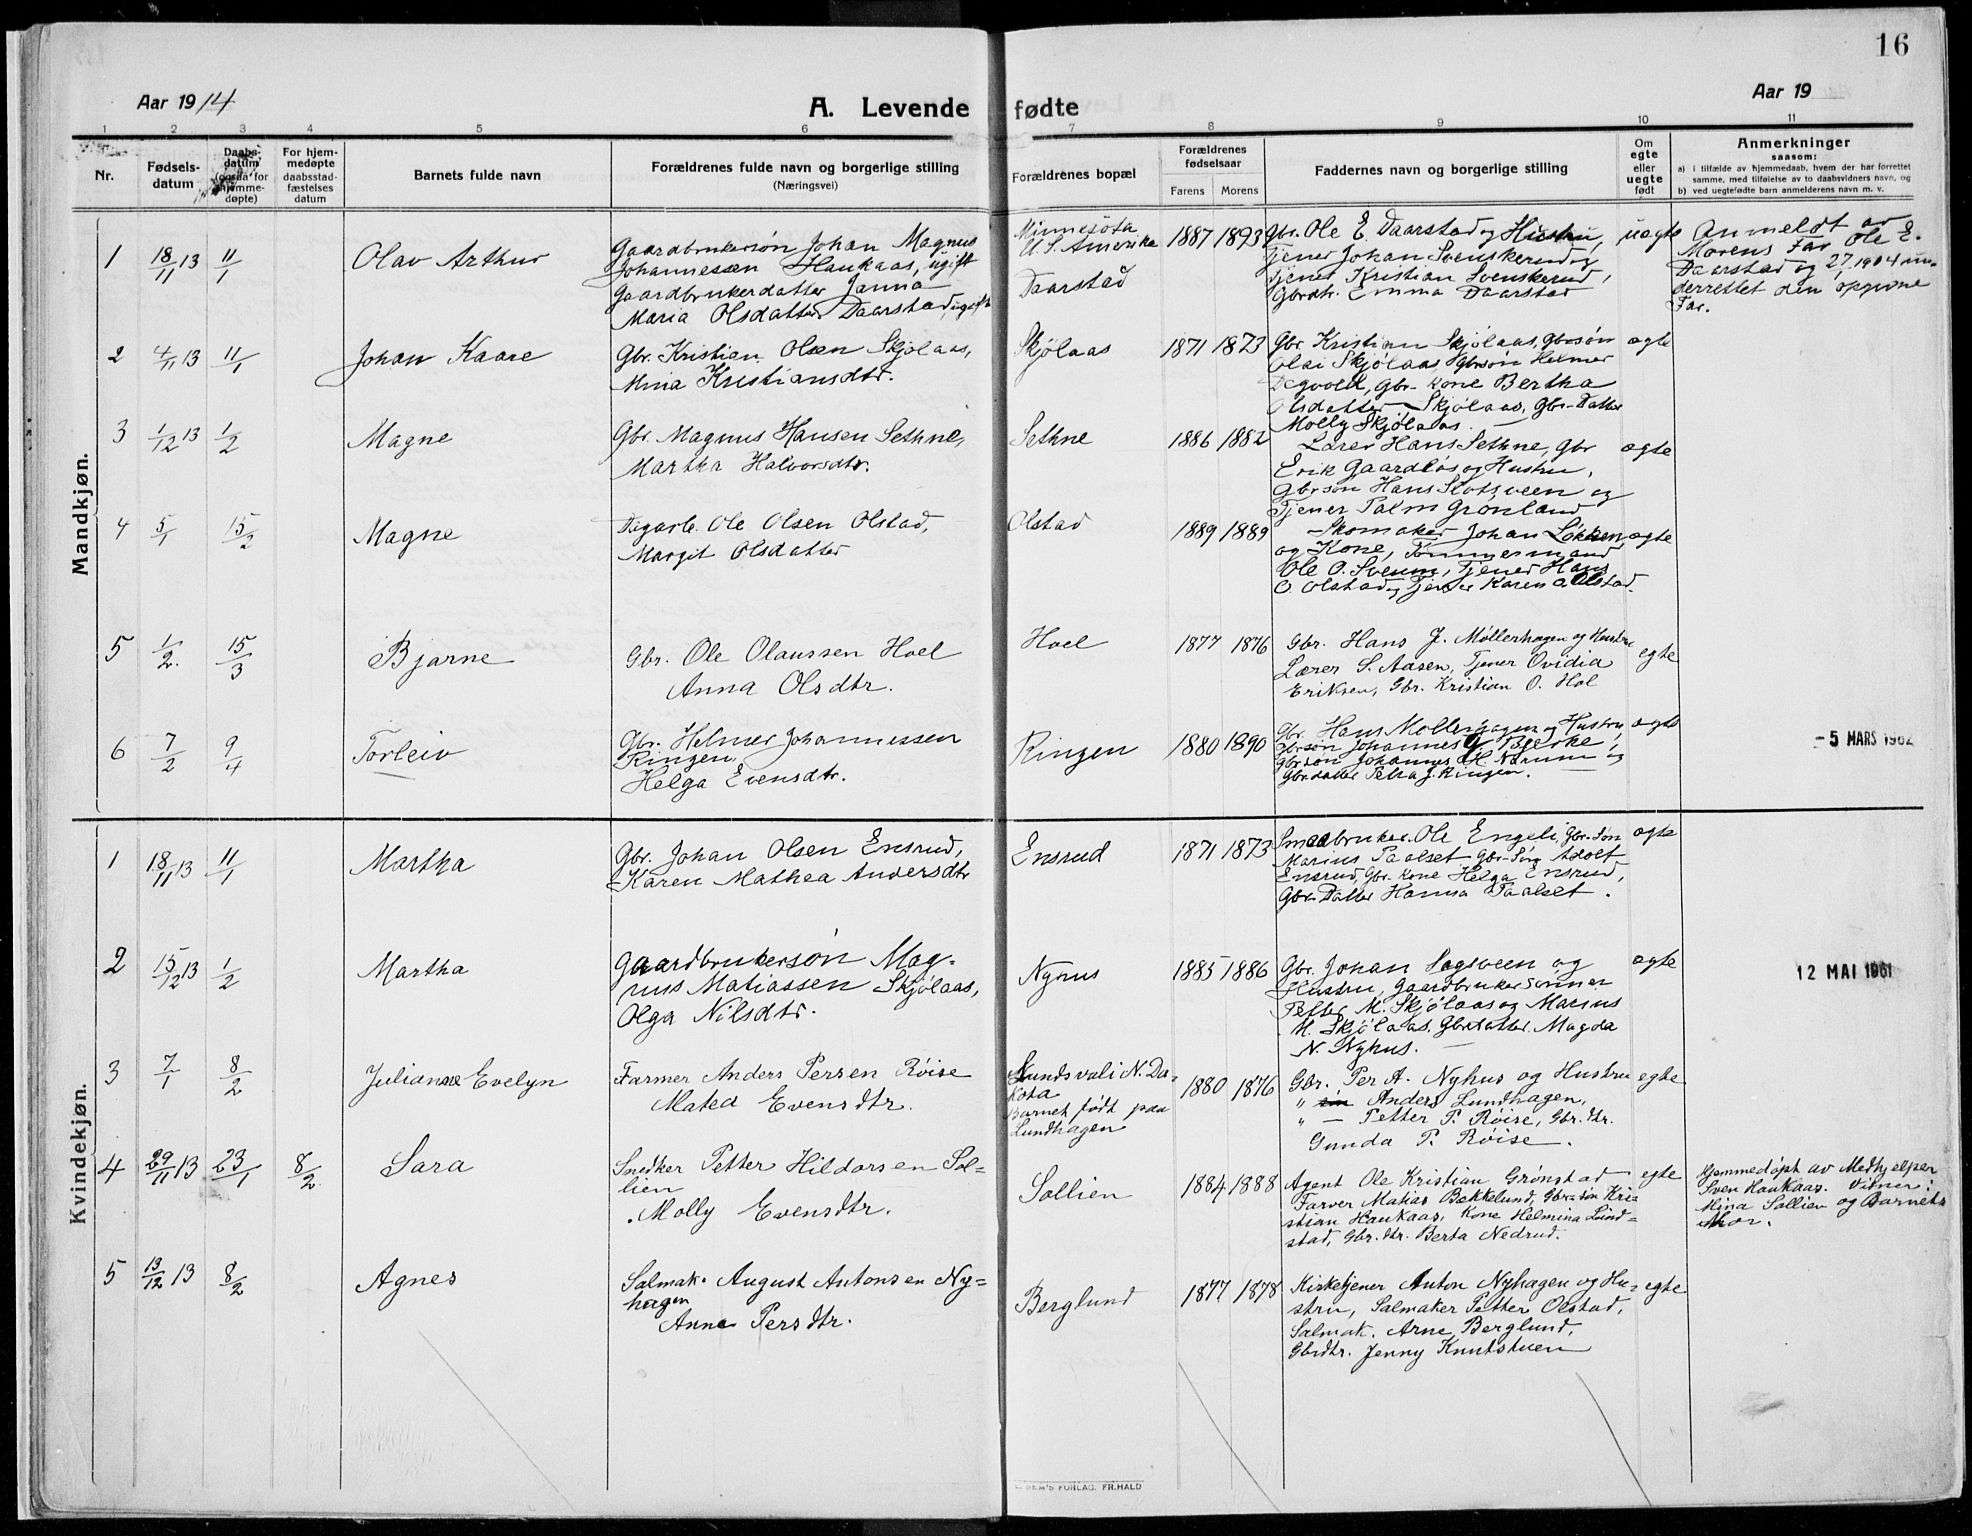 16
Aar 1914
A. Levende fødte
Aar 19
1 2 3 4 5 6 7 8 9 10 11
Nr.
Fødsels-
datum
Daabs-
datum
(ogsaa for
hjemme-
døpte)
For hjem-
medøpte
daabsstad-
fæstelses
datum
Barnets fulde navn
Forældrenes fulde navn og borgerlige stilling
(Næringsvei)
Forældrenes bopæl
Forældrenes
fødselsaar
Farens Morens
Faddernes navn og borgerlige stilling
Om
egte
eller
uegte
født
Anmerkninger
saasom:
a) i tilfælde av hjemmedaab, hvem der har forrettet
samme, med tilføielse av to daabsvidners navn, og
b) ved uegtefødte barn anmelderens navn m. v.
Mandkjøn.
1 18/11 13 11/1 Olav Arthur
Gaardbrukersøn Johan Magnus
Johannessen Haukaas, ugift
Gaardbrukerdatter Janna
Maria Olsdatter Daarstad, ugift
Minnesota
U.S. Amerika
Daarstad
1887 1893
Gbr. Ole E. Daarstad og Hustru,
Tjener Johan Svenskerud og
Tjener Kristian Svenskerud,
Gbrdtr. Emma Daarstad
uegte
Anmeldt av
Morens Far Ole E.
Daarstad og 27/1 1904 un-
derrettet den opgivne
Far.
2 4/11 13 11/1 Johan Kaare
Gbr. Kristian Olsen Skjølaas,
Mina Kristiansdtr.
Skjølaas
1871 1873
Gbr Kristian Skjølaas, Gbrsøn
Olai Skjølaas, Gbrsøn Helmer
Dagvold, Gbr-Kone Bertha
Olsdatter Skjølaas, Gbr-Datter
Molly Skjølaas.
egte
3 1/12 13 1/2 Magne
Gbr. Magnus Hansen Sethne,
Martha Halvorsdtr.
Sethne
1886 1882
Lærer Hans Sethne, Gbr
Erik Gaardløs og Hustru,
Gbrsøn Hans Slotsveen og
Tjener Palm Grønland
egte
4 5/1 15/2 Magne
Dagarb. Ole Olsen Olstad,
Margit Olsdatter
Olstad
1889 1889
Skomaker Johan Løkken
og Kone, Tømmermand
Ole O. Sveum, Tjener Hans
O. Olstad og Tjener Karen O. Olstad.
egte
5 1/2. 15/3 Bjarne
Gbr. Ole Olaussen Hoel
Anna Olsdtr.
Hoel
1877 1876
Gbr. Hans J. Møllerhagen og Hustru
Lærer S. Aasen, Tjener Ovidia
Eriksen, Gbr. Kristian O. Hol
egte
6 7/2 9/4 Torleiv
Gbr. Helmer Johannessen
Ringen,
Helga Evensdtr.
Ringen
1880 1890
Gbr. Hans Møllerhagen og Hustru,
Gbrsøn Johannes Bjerke,
Gbrsøn Johannes H. Narum og
Gbrdatter Petra J. Ringen.
egte
- 5 MARS 1962
Kvindekjøn.
1 18/11 13 11/1 Martha
Gbr. Johan Olsen Ensrud,
Karen Mathea Andersdtr
Ensrud
1871 1873
Smaabruker Ole Engeli, Gbr-Søn
Marius Paalset Gbr-Søn Adolt
Ensrud, Gbr. Kone Helga Ensrud,
Gbr Datter Hanna Paalset.
egte
2 15/12 13 1/2 Martha
Gaardbrukersøn Mag-
nus Matiassen Skjølaas,
Olga Nilsdtr.
Nyhus
1885 1886
Gbr. Johan Sagsveen og
Hustru, Gaardbrukersønner
Petter M. Skjølaas og Marius
M. Skjølaas. Gbrdatter Magda
N. Nyhus.
egte
12 MAI 1961
3 7/1 8/2 Julianne Evelyn
Farmer Anders Persen Røise
Matea Evensdtr.
Lundsvali N. Da-
kota
Barnet født paa
Lundhagen
1880 1876
Gbr. Per A. Nyhus og Hustru
" søn Anders Lundhagen,
" — Petter P. Røise, Gbr. dtr.
Gunda P. Røise.
egte
4 29/11 13 23/1 8/2. Sara
Snedker Petter Hildorsen Sol-
lien
Molly Evensdtr.
Sollien
1884 1888
Agent Ole Kristian Grønstad
Farver Matias Bækkelund, Gbr-søn Kri-
stian Haukaas, Kone Helmina Lund-
stad, Gbr. dtr. Berta Nedrud.
egte
Hjemmedøpt av Medhjelper
Sven Haukaas. Vidner:
Mina Sollien og Barnets
Mor.
5 13/12 13 8/2 Agnes
Salmak. August Antonsen Ny-
hagen
Anne Persdtr.
Berglund
1877 1878
Kirketjener Anton Nyhagen og Hu-
stru, Salmaker Petter Olstad,
Salmak. Arne Berglund,
Gbrdtr. Jenny Knutstuen
egte
FORLAG. FR. HALD